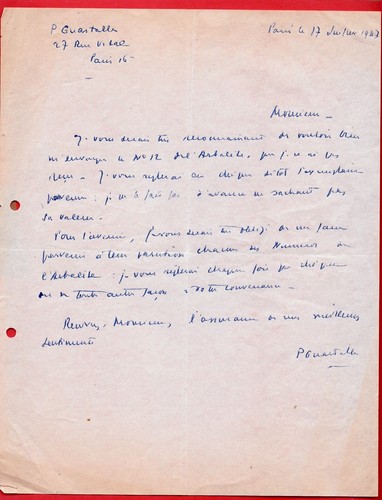 P Guastalla
27 Rue Vital
Paris 16
Paris le 17 1947
Monsieur -
Je vous serais très reconnaissant de vouloir bien
m'envoyer le No 12 de l'Arbalète, que je n'ai pas
reçu - Je vous réglerai en chèque sitôt l'exemplaire
parvenu : je ne le fais pas d'avance ne sachant pas
sa valeur -
Pour l'avenir, je vous serais très obligé de me faire
parvenir à leur parution chacun des Numéros de
l'Arbalète : je vous réglerai chaque fois par chèque
ou de toute autre façon à votre convenance -
Recevez, Monsieur, l'assurance de mes meilleurs
sentiments
P Guastalla